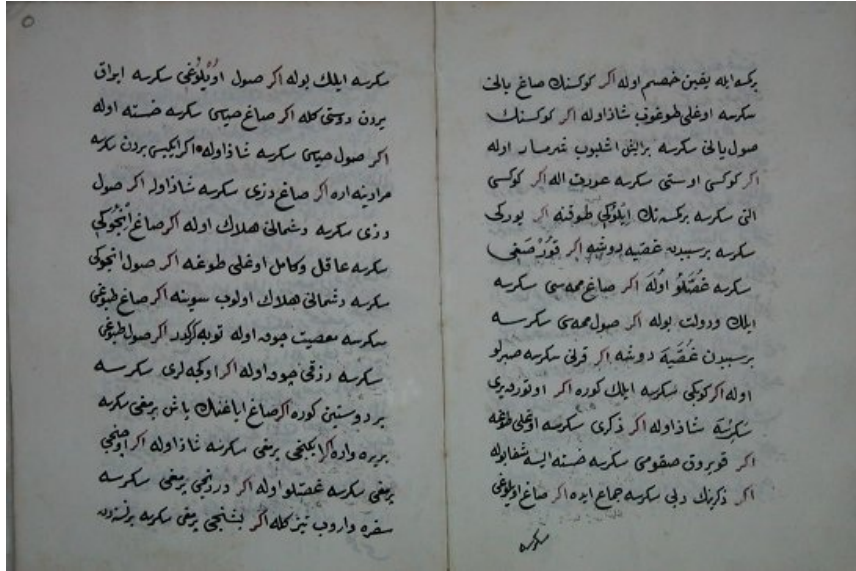 بركسه ايله يقين خصم اوله اكر كوكسنك صاغ يانی
سكرسه اوغلی طوغوب شاذ اوله اكر كوكسنك
صول يانی سكرسه برايش اشليوب شرمسار اوله
اكر كوكسی اوستی سكرسه عورت اله اكر كوكسی
التی سكرسه بركسه نك ايلوكی طوقنه اكر يوركی
سكرسه برسبيدن غصيه دوشه اكر قورد صغی
سكرسه غصتلو اوله اكر صاغ ممه سی سكرسه
ايلك ودولت بوله اكر صول ممه سی سكرسه
برسبيدن غصيه دوشه اكر قرنی سكرسه صبرلو
اوله اكر كوبكی سكرسه ايلك كوره اكر اوتورديری
سكرسه شاذ اوله اكر ذكری سكرسه اوغلی طوغه
اكر قويروق صقومی سكرسه خسته ايسه شفا بوله
اكر ذكرينك دبی سكرسه جماع ايده اكر صاغ اويلوغی
سكرسه
سكرسه ايلك بوله اكر صول اويلوغی سكرسه ايراق
يردن دوستی كله اكر صاغ حيسی سكرسه خسته اوله
اكر صول حيسی سكرسه شاذ اوله اكر ايكيسی بردن سكرسه
مرادينه اره اكر صاغ دزی سكرسه شاذ اوله اكر صول
دزی سكرسه دشمانی هلاك اوله اكر صاغ انجوكی
سكرسه عاقل وكامل اوغلی طوغه اكر صول انجوكی
سكرسه دشمانی هلاك اولوب سوينه اكر صاغ طبوغی
سكرسه معصيت چوق اوله توبه كركدر اكر صول طبوغی
سكرسه رزقی چوق اوله اكر اوكجه لری سكرسه
بر دوستين كوره اكر صاغ اياغنك باش برمغی سكرسه
بريره واره اكر ايكنجی برمغی سكرسه شاذ اوله اكر اوچنجی
برمغی سكرسه غصتلو اوله اكر دردنجی برمغی سكرسه
سفره واروب تيز كله اكر بشنجی برمغی سكرسه برنسنه دن